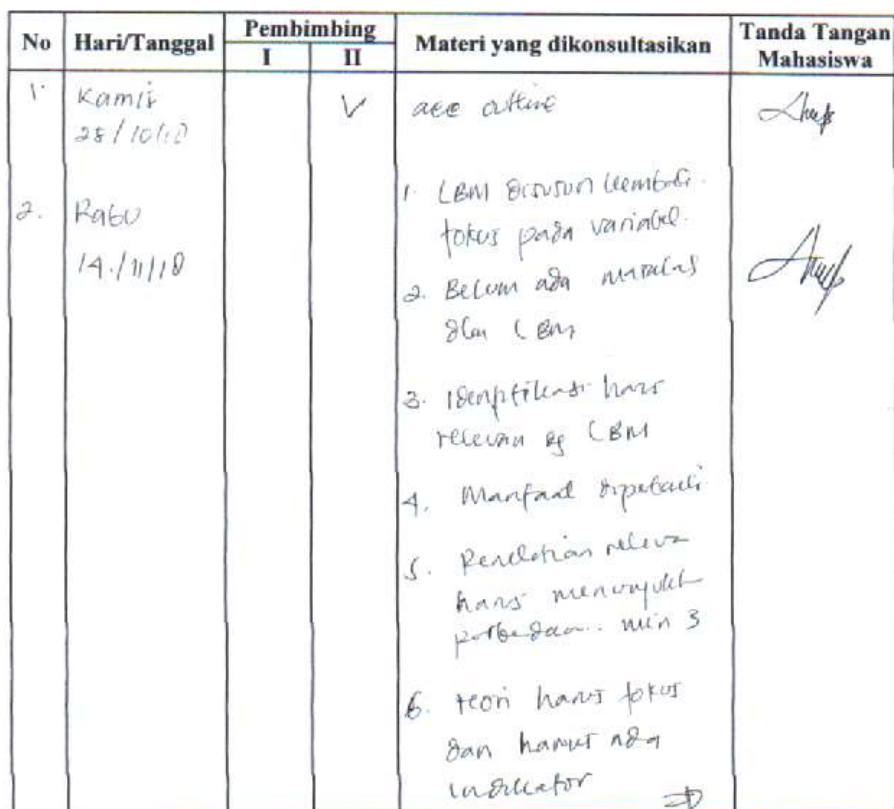 No Hari/Tanggal Pembimbing Materi yang dikonsultasikan Tanda Tangan
I II Mahasiswa
1. Kamis V acc outline
28/10/18
2. Rabu
14/11/18
1. LBM disusun kembali.
fokus pada variabel.
2. Belum ada masalas
dlm LBM
3. Identifikasi harus
relevan dg LBM
4. Manfaat diperbaiki
5. Penelitian releva
harus menunjukk
perbedaan.. min 3
6. teori harus fokus
dan harus ada
indikator